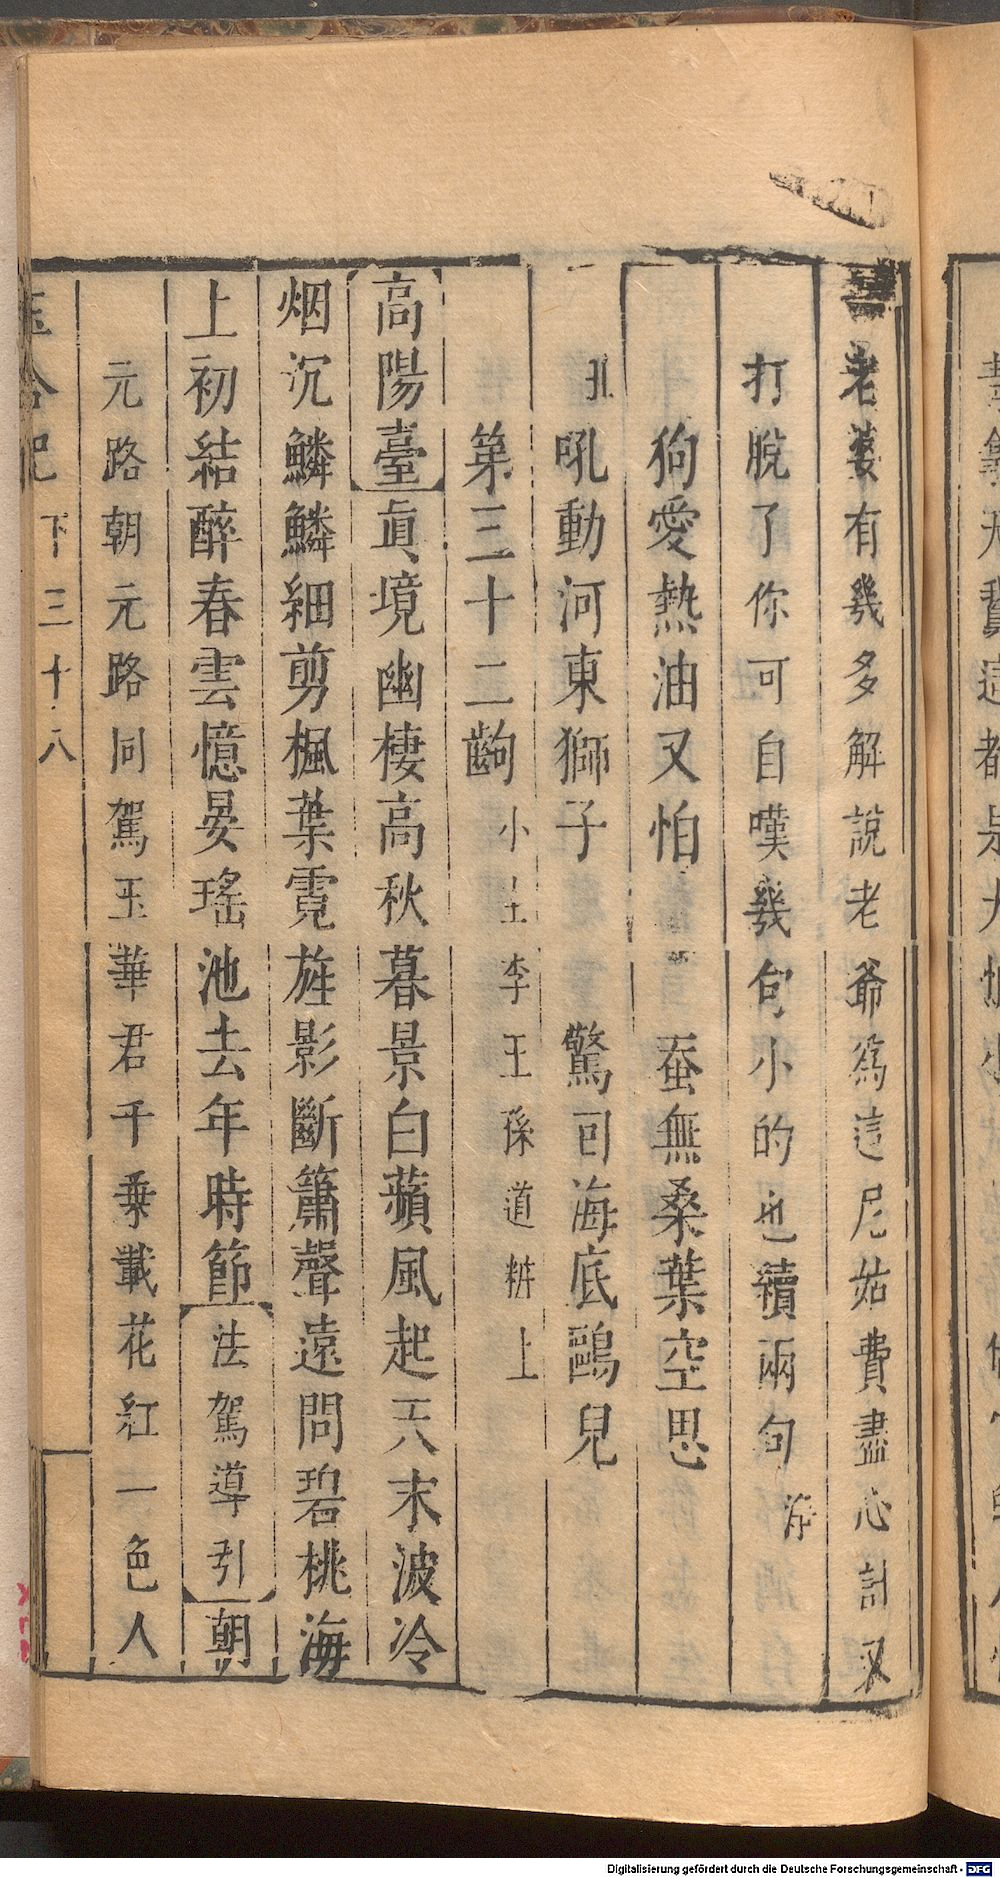 老婆有幾多解說老爺爲這尼姑費盡心計又
打脫了你可自嘆幾句小的也續兩句 淨
狗愛熱油又怕 蚕無桑葉空思
丑 吼動河東獅子 驚回海底鷗兒
第三十二齣 小土李王孫道粧上
高陽臺 眞境幽棲高秋暮景白蘋風起天末波冷
烟沉鱗鱗細剪楓葉霓旌影斷簫聲遠問碧桃海
上初結醉春雲憶晏瑤池去年時節 法駕導引 朝
元路朝元路同駕玉華君千乗載花紅一色人
玉合記 下 三十八
Digitalisierung gefördert durch die Deutsche Forschungsgemeinschaft - DFG